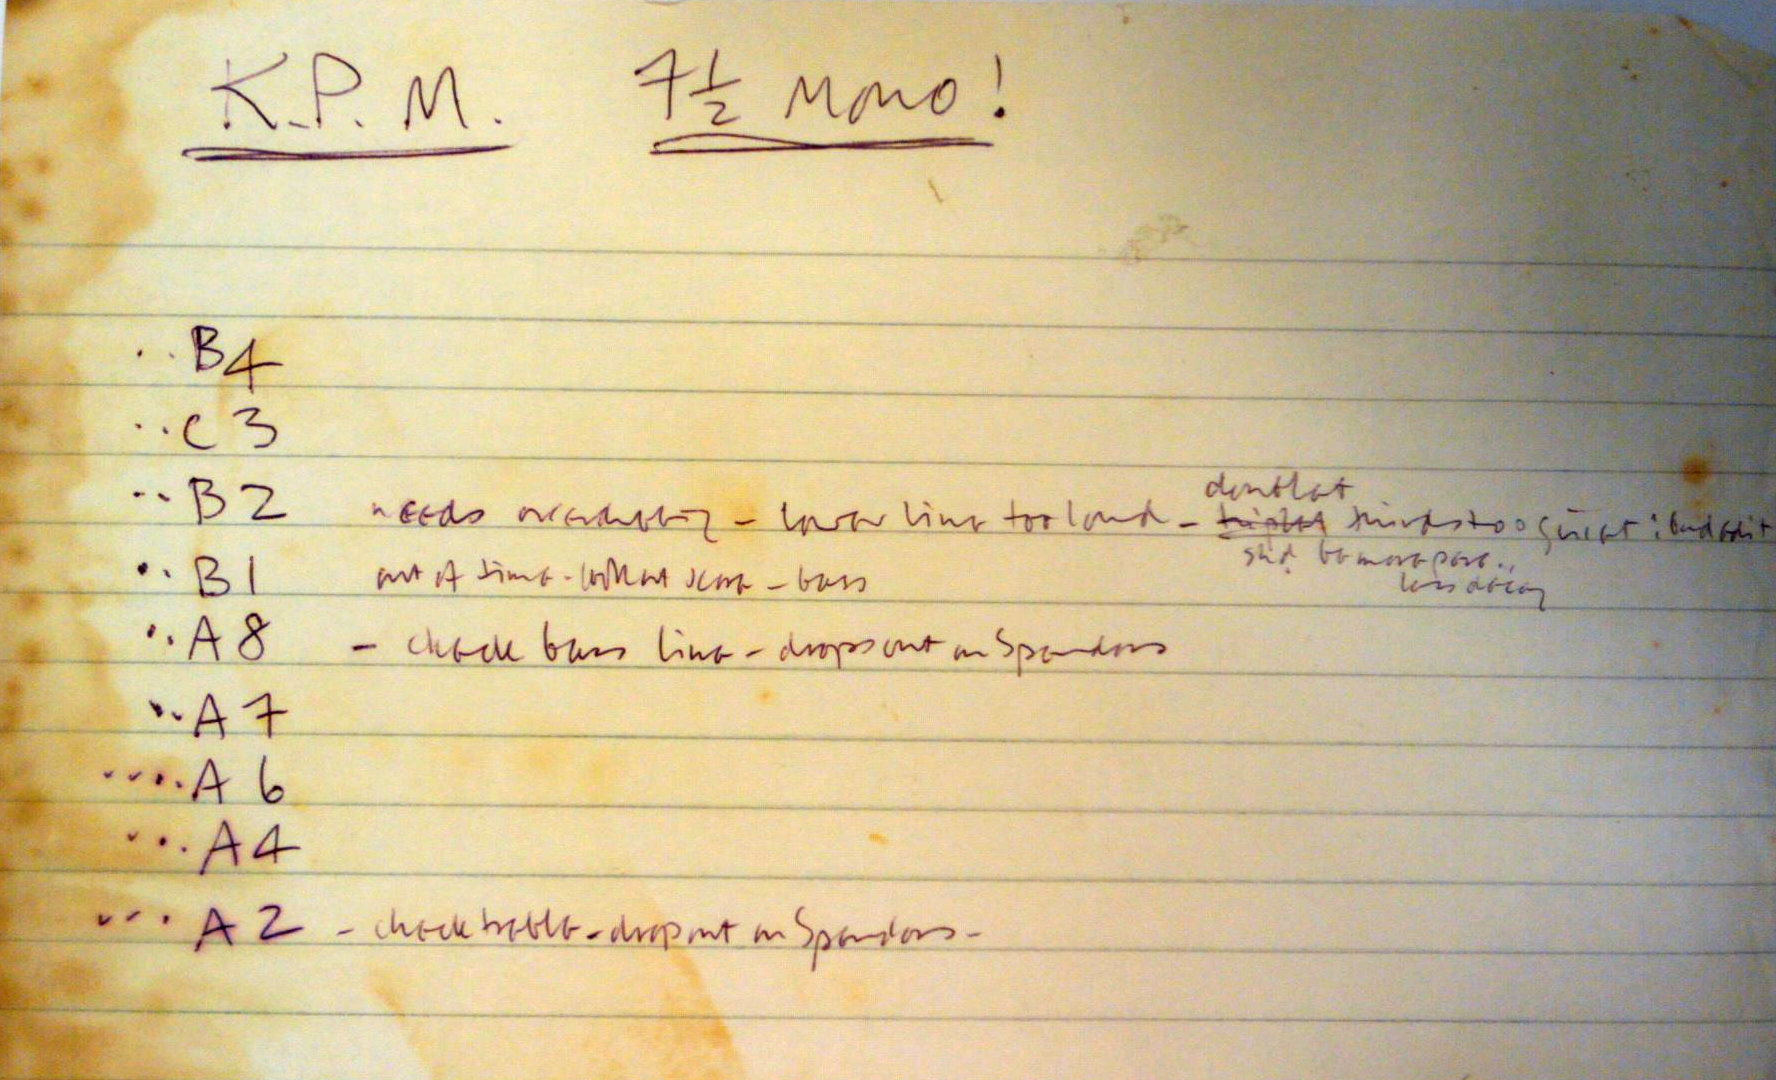 K.P.M. 7½ Mono!
B4
C3
B2 needs overdubbing - lower line too loud - thirds too quiet : bad edit
shd. be more pure..
less decay
B1 out of time - without score - bass
A8 - check bass line - drops out on Spendors
A7
A6
A4
A2 - check treble - drop out on Spendors -